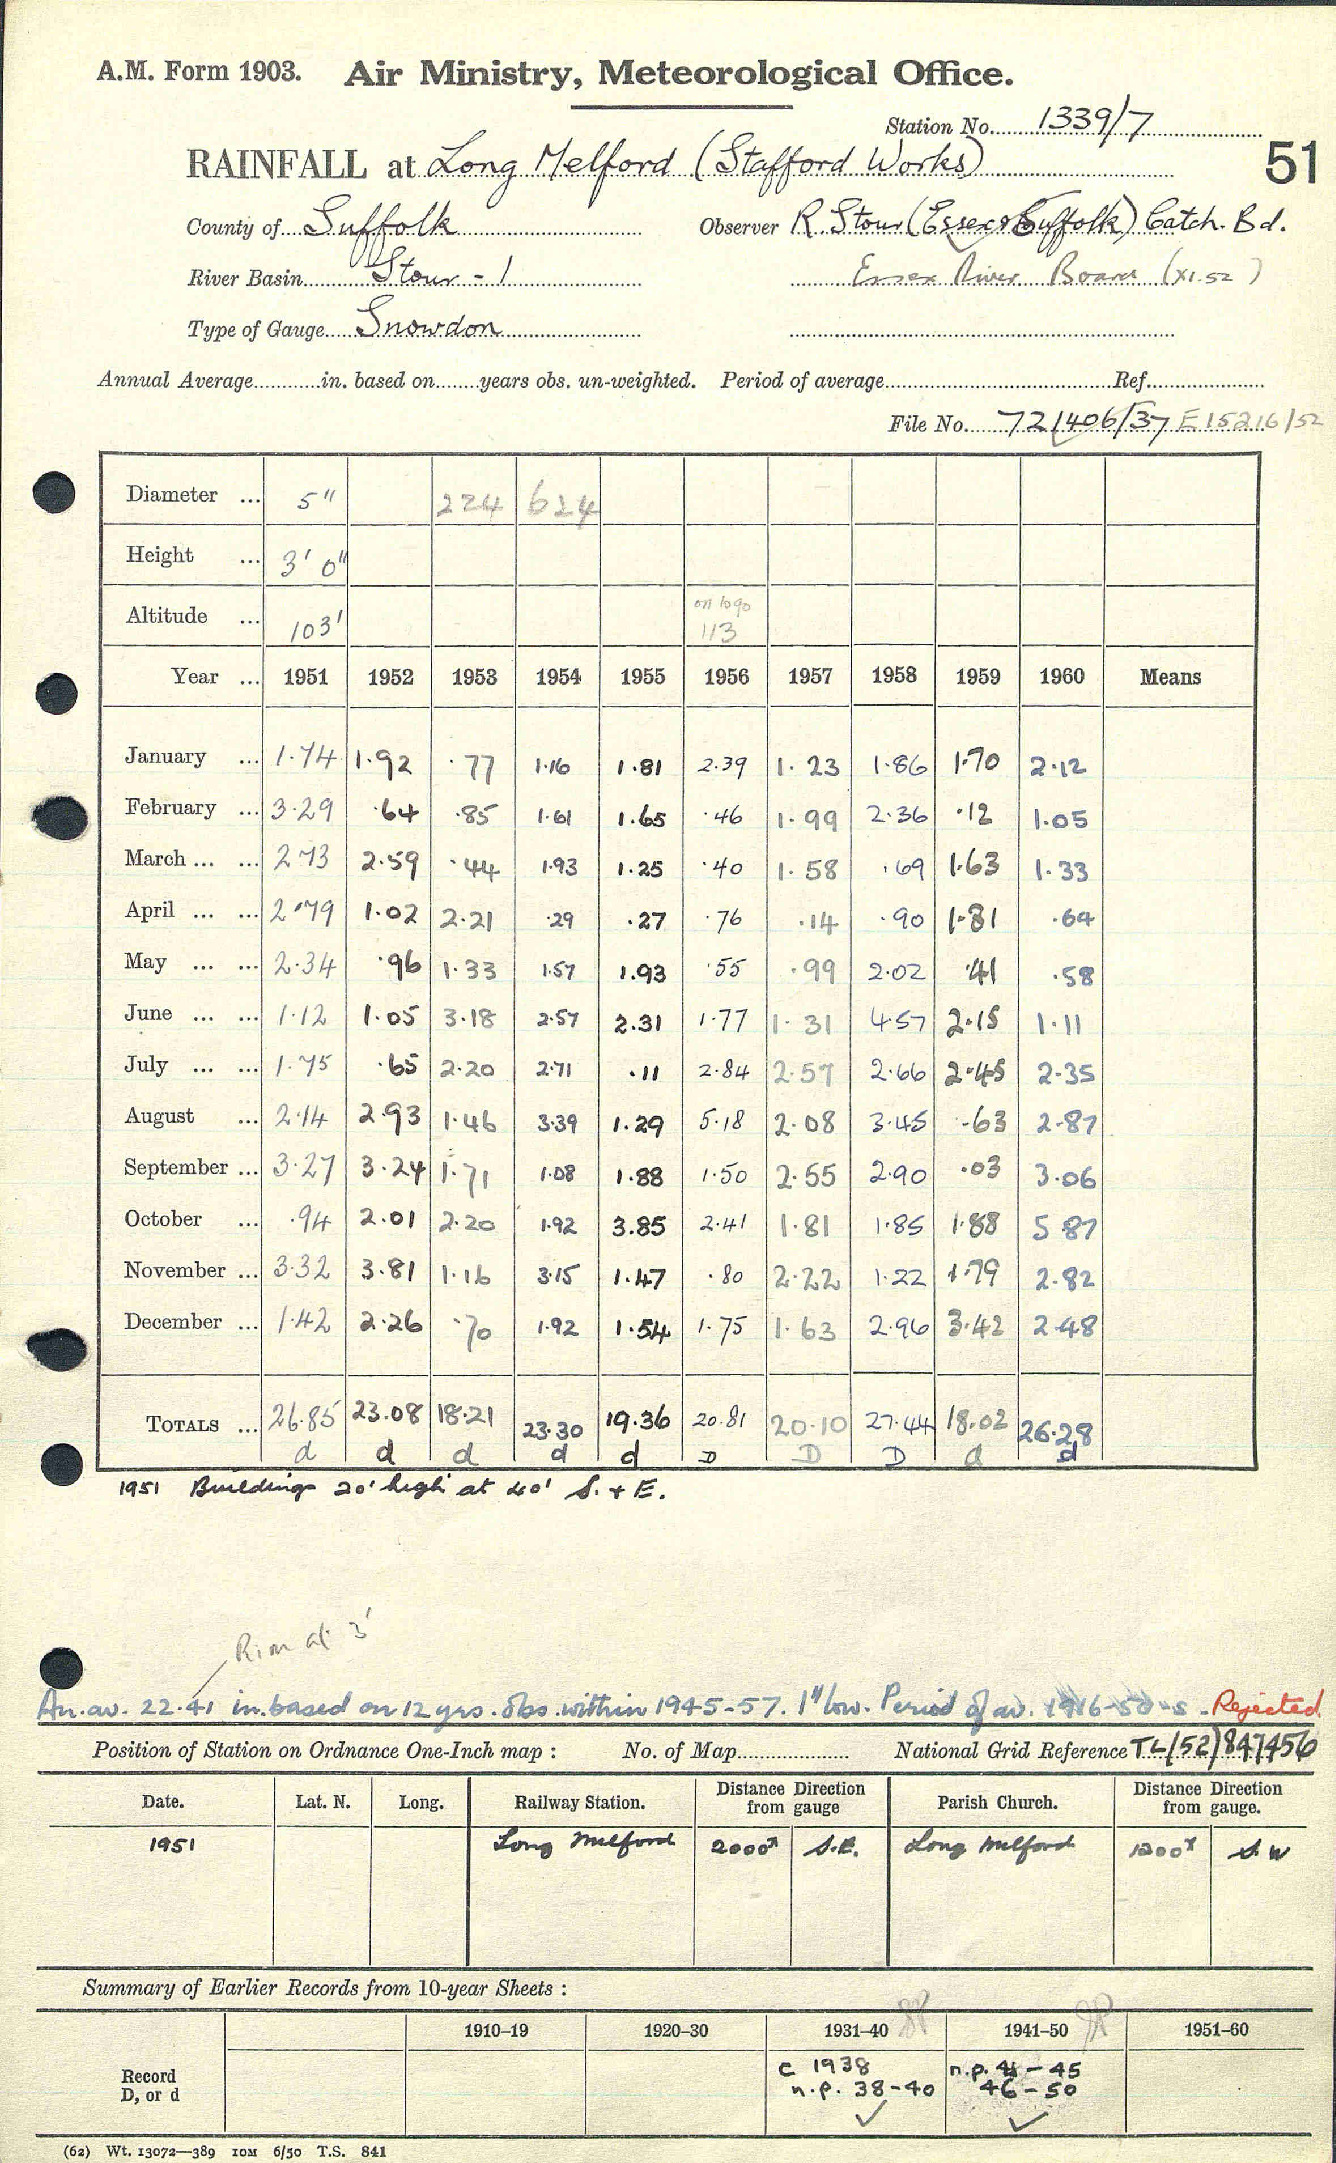 A.M. Form 1903. Air Ministry, Meteorological Office.
Station No. 1339/7
RAINFALL at Long Melford (Stafford Works)
51
County of Suffolk Observer R. Stour (Essex & Suffolk) Catch. Bd.
River Basin Stour - 1 Essex River Board (XI.52)
Type of Gauge Snowdon
Annual Average in. based on years obs. un-weighted. Period of average Ref.
File No. 721406/37 E15216/52
Diameter ... 5" 224 624
Height ... 3' 0"
Altitude ... 103' 113
Year ... 1951 1952 1953 1954 1955 1956 1957 1958 1959 1960 Means
January ... 1.74 1.92 .77 1.16 1.81 2.39 1.23 1.86 1.70 2.12
February ... 3.29 .64 .85 1.61 1.65 .46 1.99 2.36 .12 1.05
March ... ... 2.73 2.59 .44 1.93 1.25 .40 1.58 .69 1.63 1.33
April ... ... 2.79 1.02 2.21 .29 .27 .76 .14 .90 1.81 .64
May ... ... 2.34 .96 1.33 1.57 1.93 .55 .99 2.02 .41 .58
June ... ... 1.12 1.05 3.18 2.57 2.31 1.77 1.31 4.57 2.15 1.11
July ... ... 1.75 .65 2.20 2.71 .11 2.84 2.57 2.66 2.45 2.35
August ... 2.14 2.93 1.46 3.39 1.29 5.18 2.08 3.45 .63 2.87
September ... 3.27 3.24 1.71 1.08 1.88 1.50 2.55 2.90 .03 3.06
October ... .94 2.01 2.20 1.92 3.85 2.41 1.81 1.85 1.88 5.87
November ... 3.32 3.81 1.16 3.15 1.47 .80 2.22 1.22 1.79 2.82
December ... 1.42 2.26 .70 1.92 1.54 1.75 1.63 2.96 3.42 2.48
TOTALS ... 26.85 23.08 18.21 23.30 19.36 20.81 20.10 27.44 18.02 26.28
d d d d d D D D d d
1951 Buildings 20' high at 40' S. + E.
Rim at 3'
An. av. 22.41 in. based on 12 yrs. obs. within 1945-57. 1" low. Period of av. 1916-50 - Rejected
Position of Station on Ordnance One-Inch map : No. of Map National Grid Reference TL(52)847456
Date. Lat. N. Long. Railway Station. Distance from gauge Direction Parish Church. Distance from gauge. Direction
1951 Long Melford 2000x S.E. Long Melford 1200x S W
Summary of Earlier Records from 10-year Sheets :
1910–19 1920–30 1931–40 1941–50 1951–60
Record D, or d
c 1938 n.p. 41 - 45
n.p. 38-40 46-50
(62) Wt. 13072—389 10M 6/50 T.S. 841